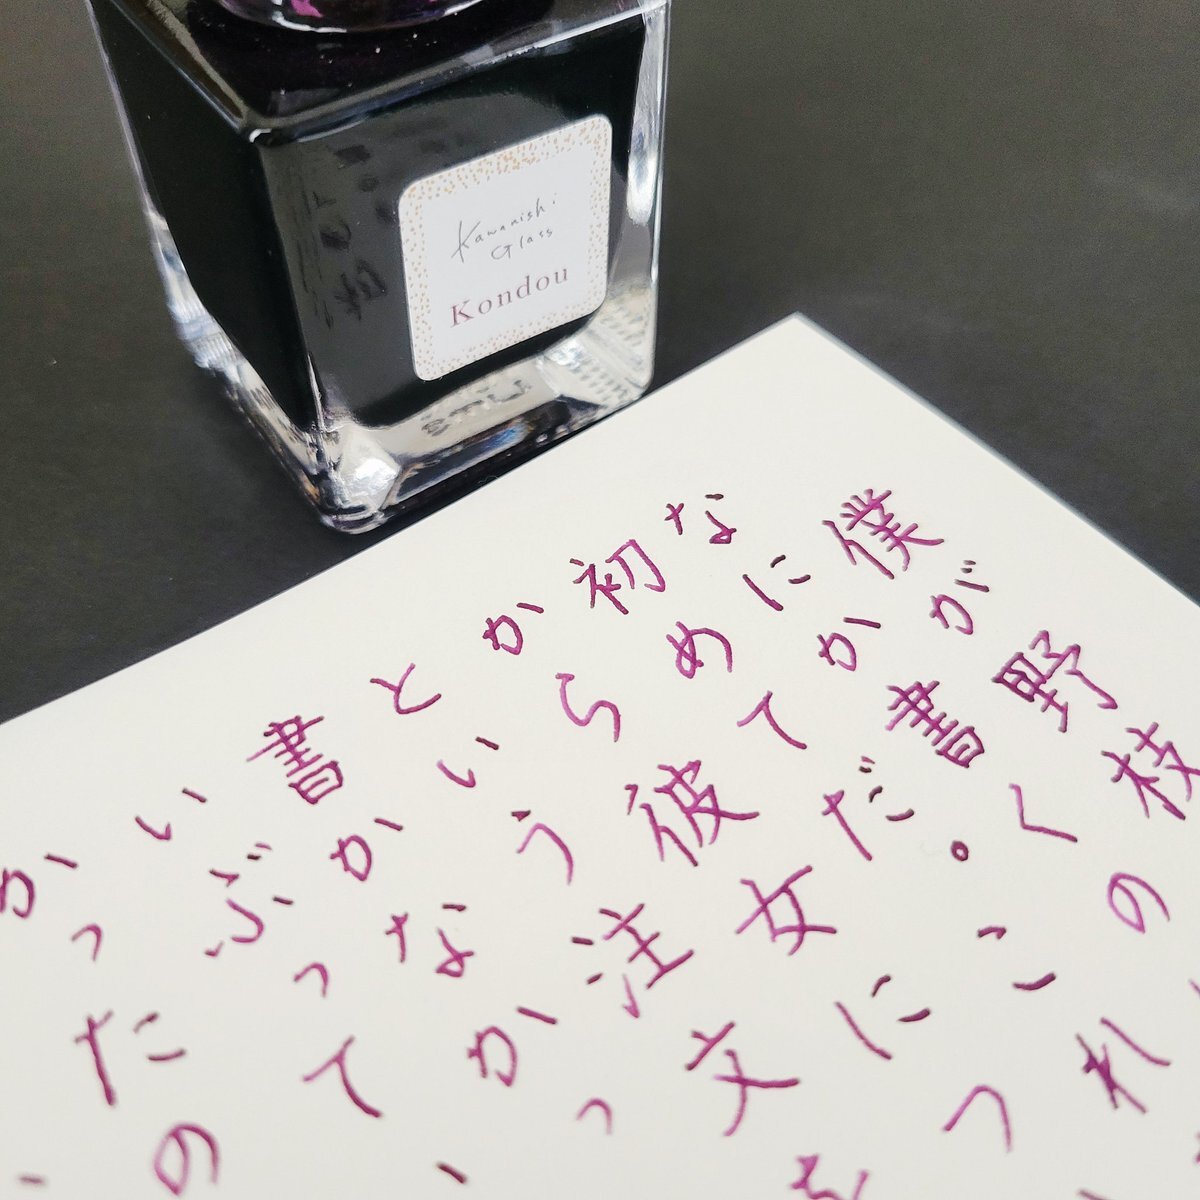 Kawanishi
Glass
Kondou
僕が野枝
なにか書くの
初めてだ。これ
から彼女につ
という注文を
書かなかっ
いぶってい
かったの